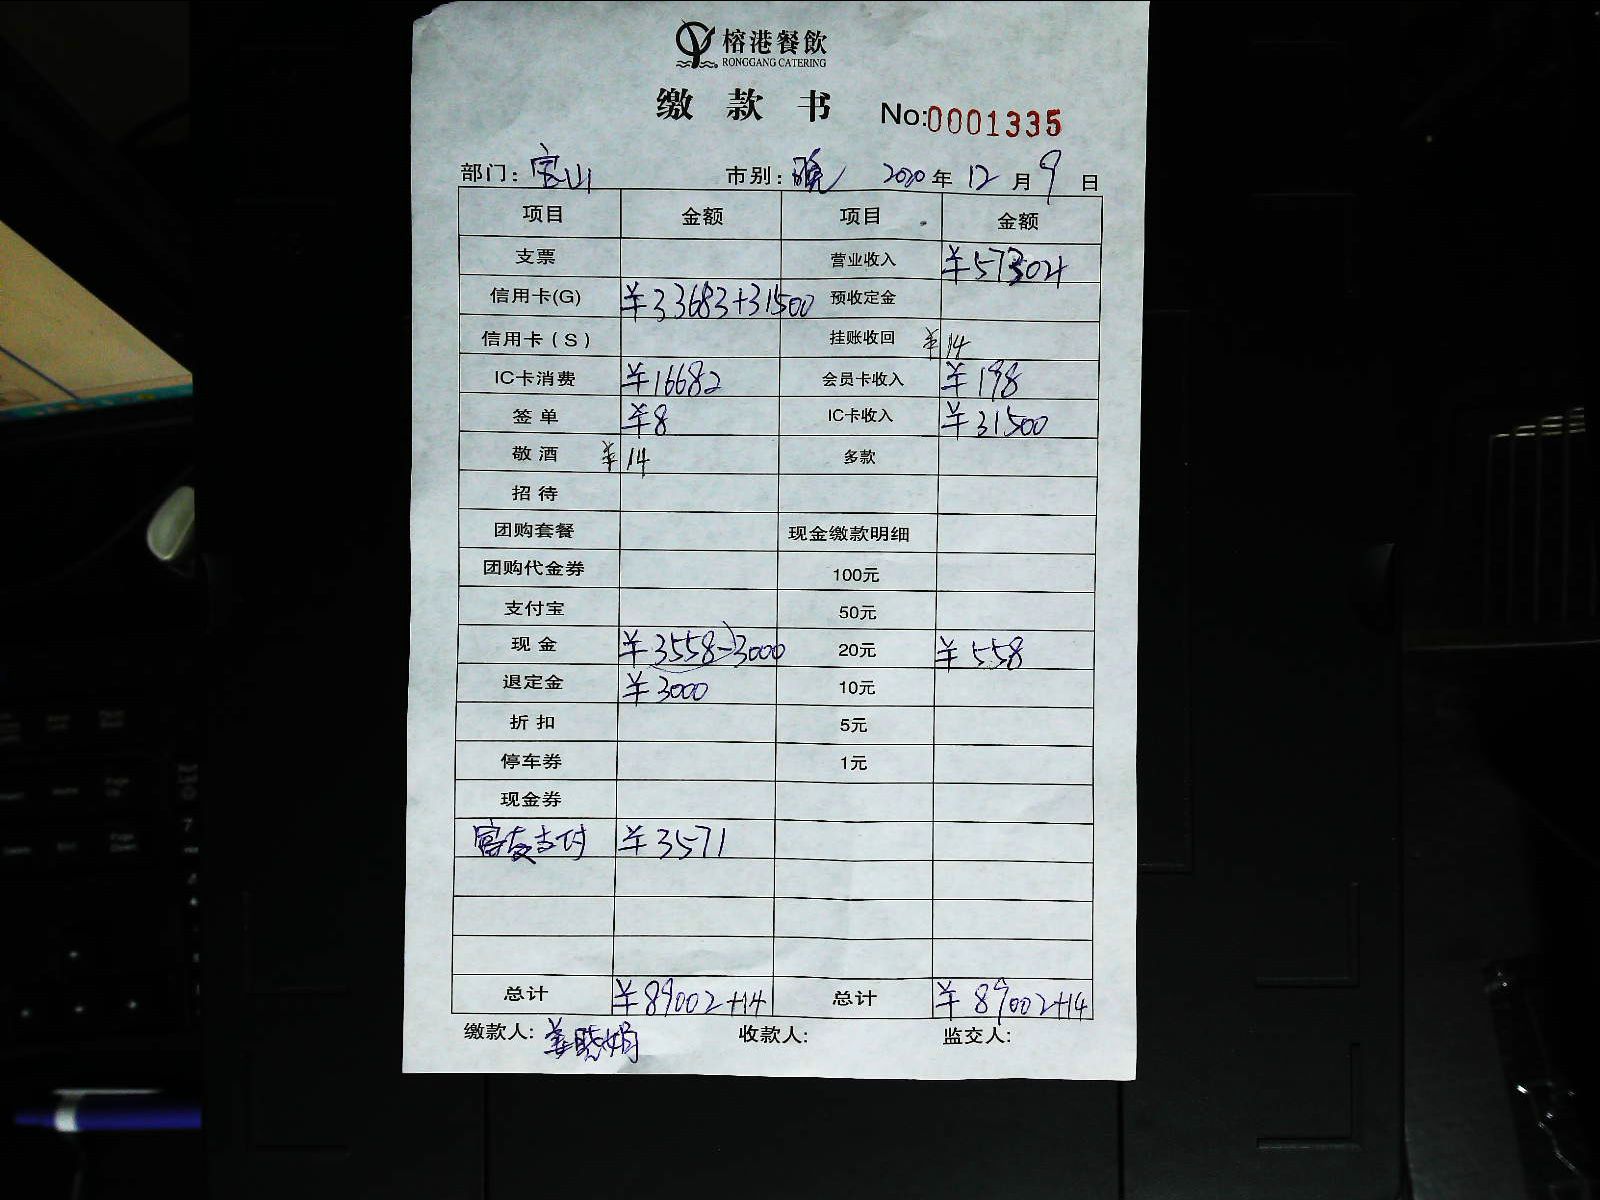 榕港餐飲
RONGGANG CATERING
缴款书 No:0001335
部门: 宝山 市别: 晚 2020年12月9日
项目 金额 项目 金额
支票 营业收入 ¥57304
信用卡(G) ¥33683+31500 预收定金
信用卡(S) 挂账收回 ¥14
IC卡消费 ¥16682 会员卡收入 ¥198
签单 ¥8 IC卡收入 ¥31500
敬酒 ¥14 多款
招待
团购套餐 现金缴款明细
团购代金券 100元
支付宝 50元
现金 ¥3558-3000 20元 ¥558
退定金 ¥3000 10元
折扣 5元
停车券 1元
现金券
支付 ¥3571
总计 ¥89002+14 总计 ¥89002+14
缴款人: 姜晓娟 收款人: 监交人: